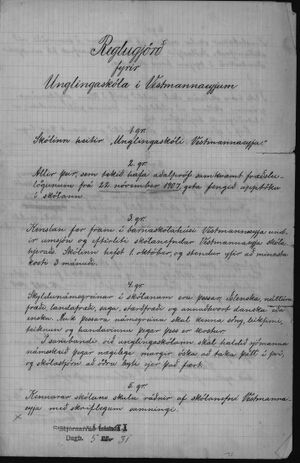 Reglugjörð
fyrir
Unglingaskóla í Vestmannaeyjum
1. gr.
Skólinn heitir "Unglingaskóli Vestmannaeyja."
2. gr.
Allir þeir, sem tekið hafa aðalpróf samkvæmt fræðslu-
lögunum frá 22. nóvember 1907, geta fengið upptöku
í skólann
3. gr.
Kenslan fer fram í barnaskólahúsi Vestmannaeyja und-
ir umsjón og eftirliti skólanefndar Vestmannaeyja skóla
hjeraðs. Skólinn hefst 1. október, og stendur yfir að minsta
kosti 3 mánuði.
4. gr.
Skyldunámsgreinar í skólanum eru þessar: Íslenska, náttúru
fræði, landafræði, saga, stærðfræði og annaðhvort danska eða
enska. Auk þessara námsgreina skal kenna söng, leikfimi,
teiknun og handavinnu þegar þess er kostur
Í sambandi við unglingaskólann skal haldið
námsskeið þegar nægilega margir óska að taka þátt í því,
og skólastjórn að öðru leyti sjer það fært.
5. gr.
Kennarar skólans skulu ráðnir af skólanefnd Vestmanna-
eyja með skriflegum samningi.
Dagb. 5 Nr. 31